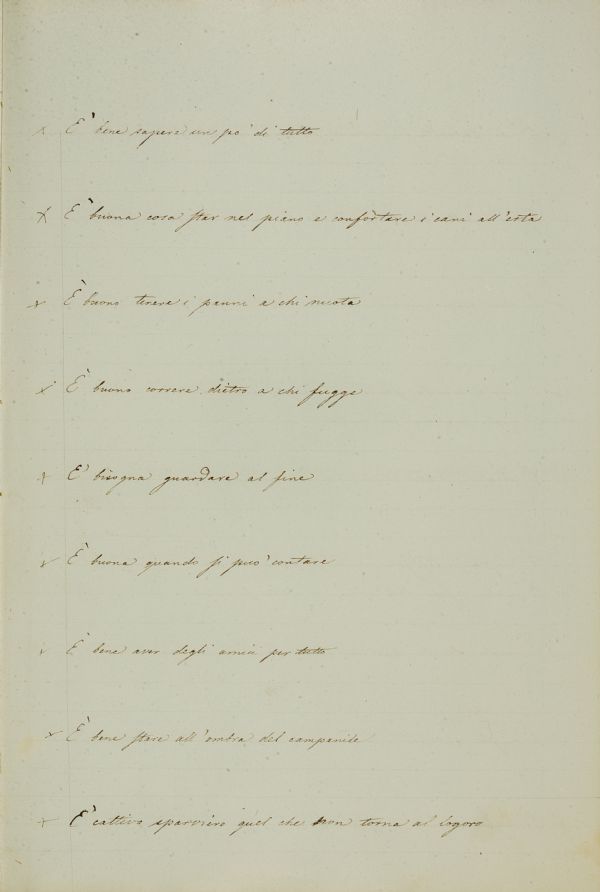 × E' bene sapere un po' di tutto
× E' buona cosa star nel piano e confortare i cani all'erta
× È buono tenere i panni a chi nuota
× È buono correre dietro a chi fugge
× E' bisogna guardare al fine
× È buona quando si può contare
× È bene aver degli amici per tutto
× È bene stare all'ombra del campanile
× E' cattivo sparviero quel che non torna al logoro